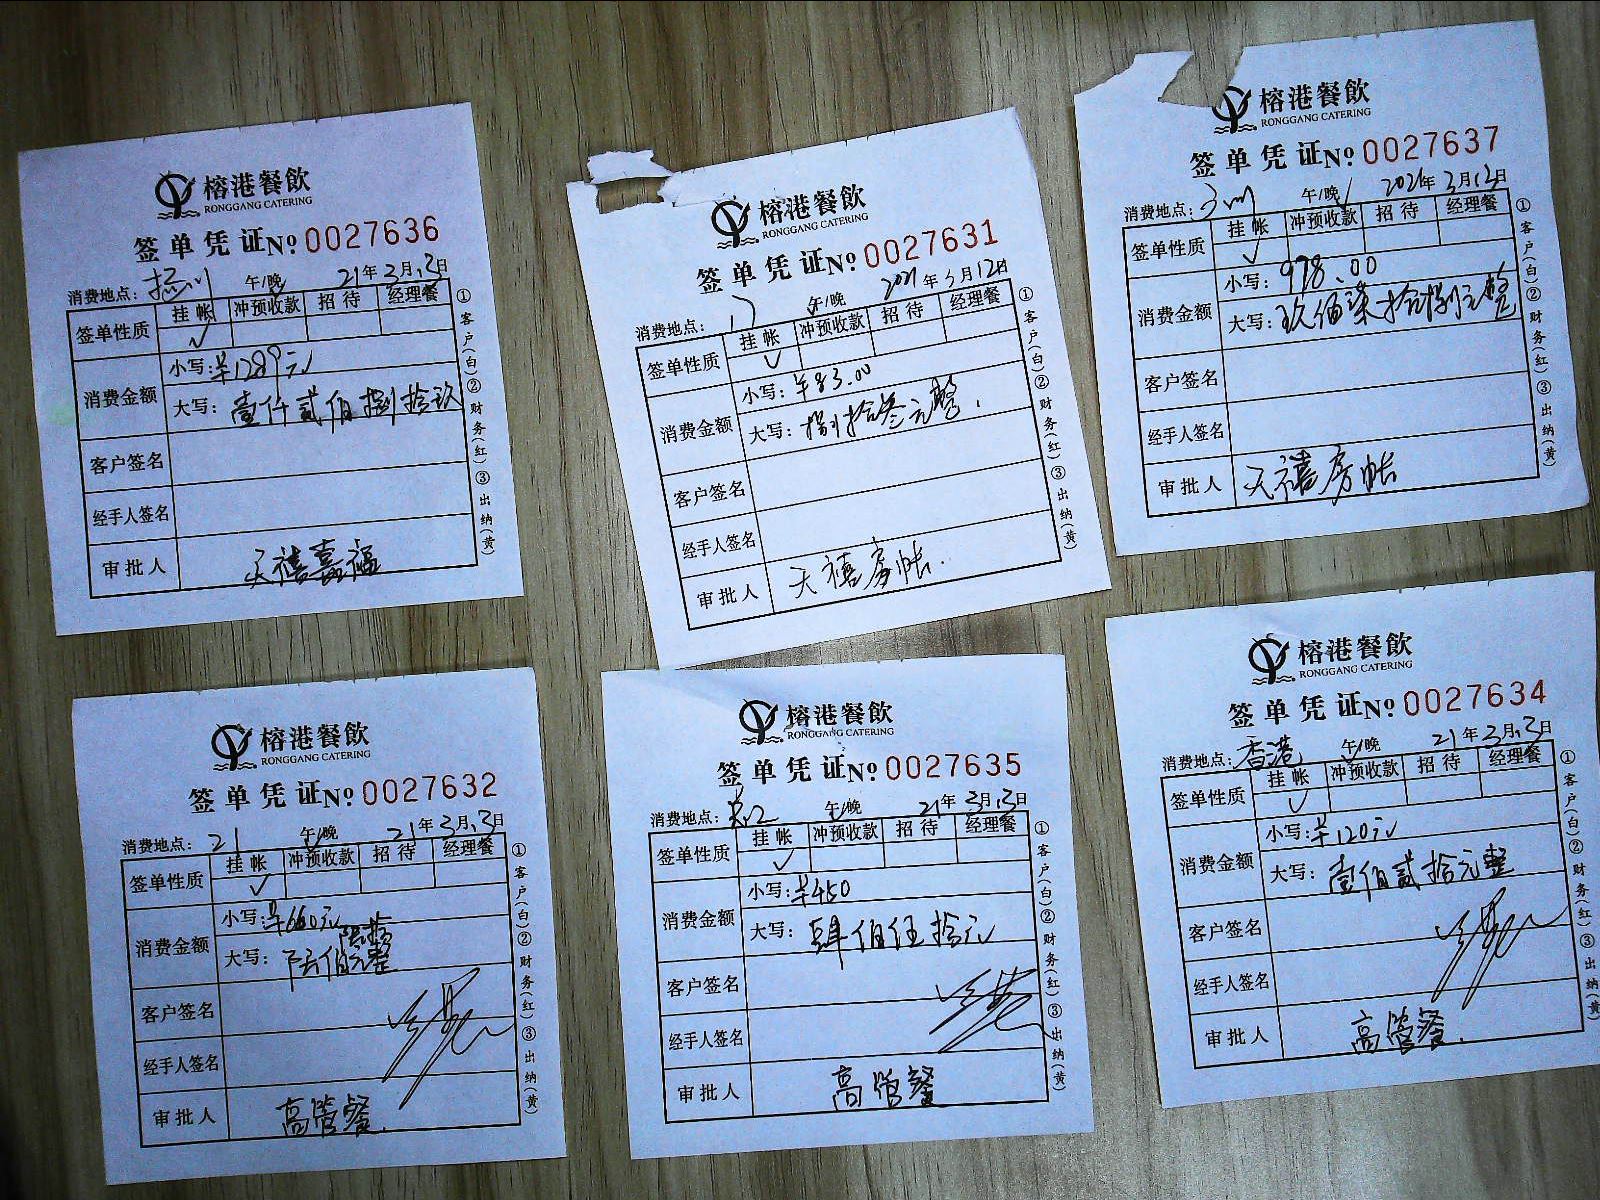 榕港餐飲
RONGGANG CATERING
签单凭证№0027636
消费地点: 午/晚 21年3月13日
签单性质 挂帐 冲预收款 招待 经理餐
✓
消费金额 小写:¥1289元
大写:壹仟贰佰捌拾玖
客户签名
经手人签名
审批人 天禧嘉福
①客户(白)②财务(红)③出纳(黄)
榕港餐飲
RONGGANG CATERING
签单凭证№0027631
消费地点: 午/晚 2021年3月12日
签单性质 挂帐 冲预收款 招待 经理餐
✓
消费金额 小写:¥83.00
大写:捌拾叁元整.
客户签名
经手人签名
审批人 天禧房帐.
①客户(白)②财务(红)③出纳(黄)
榕港餐飲
RONGGANG CATERING
签单凭证№0027637
消费地点: 午/晚 2021年3月12日
签单性质 挂帐 冲预收款 招待 经理餐
✓
消费金额 小写:978.00
大写:玖佰柒拾捌元整
客户签名
经手人签名
审批人 天禧房帐
①客户(白)②财务(红)③出纳(黄)
榕港餐飲
RONGGANG CATERING
签单凭证№0027632
消费地点:21 午/晚 21年3月13日
签单性质 挂帐 冲预收款 招待 经理餐
✓
消费金额 小写:¥660元
陆拾
大写:陆佰元整
客户签名
经手人签名
审批人 高管餐.
①客户(白)②财务(红)③出纳(黄)
榕港餐飲
RONGGANG CATERING
签单凭证№0027635
消费地点: 午/晚 21年3月13日
签单性质 挂帐 冲预收款 招待 经理餐
✓
消费金额 小写:¥450
大写:肆佰伍拾元
客户签名
经手人签名
审批人 高管餐
①客户(白)②财务(红)③出纳(黄)
榕港餐飲
RONGGANG CATERING
签单凭证№0027634
消费地点:香港 午/晚 21年3月13日
签单性质 挂帐 冲预收款 招待 经理餐
✓
消费金额 小写:¥120元
大写:壹佰贰拾元整
客户签名
经手人签名
审批人 高管餐.
①客户(白)②财务(红)③出纳(黄)